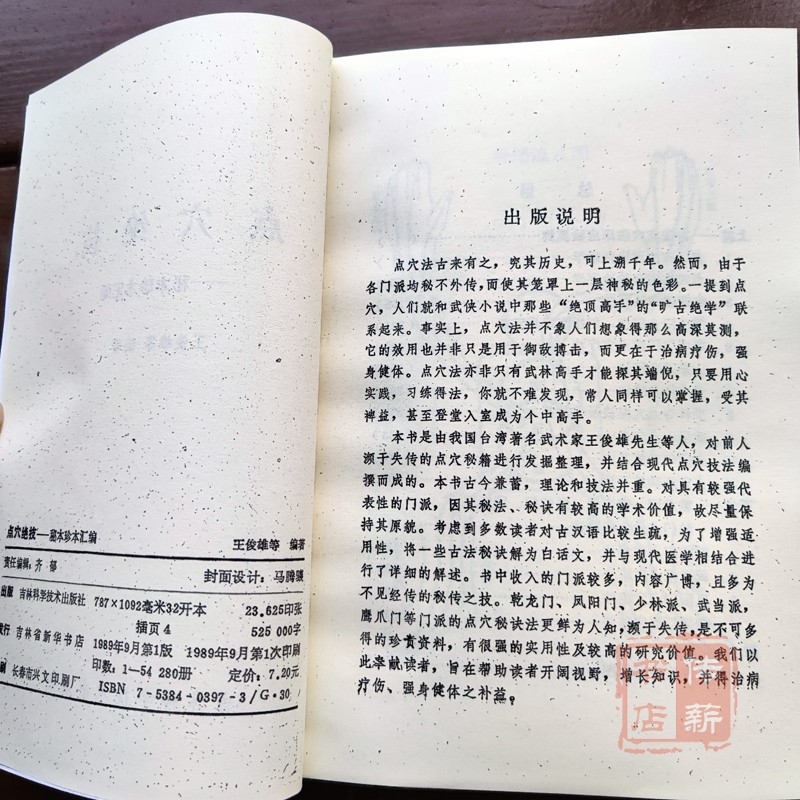 点穴绝技—秘本珍本汇编
王俊雄等 编著
责任编辑：齐 郁 封面设计：马腾骧
出版 吉林科学技术出版社 787×1092毫米32开本 23.625印张
插页 4 525 000字
发行 吉林省新华书店 1989年9月第1版 1989年9月第1次印刷
印数：1—54 280册 定价：7.20元
刷 长春市兴文印刷厂 ISBN 7-5384-0397-3/G·30
出版说明
点穴法古来有之，究其历史，可上溯千年。然而，由于
各门派均秘不外传，而使其笼罩上一层神秘的色彩。一提到点
穴，人们就和武侠小说中那些“绝顶高手”的“旷古绝学”联
系起来。事实上，点穴法并不象人们想象得那么高深莫测，
它的效用也并非只是用于御敌搏击，而更在于治病疗伤，强
身健体。点穴法亦非只有武林高手才能探其端倪，只要用心
实践，习练得法，你就不难发现，常人同样可以掌握，受其
裨益，甚至登堂入室成为个中高手。
本书是由我国台湾著名武术家王俊雄先生等人，对前人
濒于失传的点穴秘籍进行发掘整理，并结合现代点穴技法编
撰而成的。本书古今兼蓄，理论和技法并重。对具有较强代
表性的门派，因其秘法、秘诀有较高的学术价值，故尽量保
持其原貌。考虑到多数读者对古汉语比较生疏，为了增强适
用性，将一些古法秘诀解为白话文，并与现代医学相结合进
行了详细的解述。书中收入的门派较多，内容广博，且多为
不见经传的秘传之技。乾龙门、凤阳门、少林派、武当派，
鹰爪门等门派的点穴秘诀法更鲜为人知，濒于失传，是不可多
得的珍贵资料，有很强的实用性及较高的研究价值。我们以
此奉献读者，旨在帮助读者开阔视野，增长知识，并得治病
疗伤、强身健体之补益。
传薪
书店